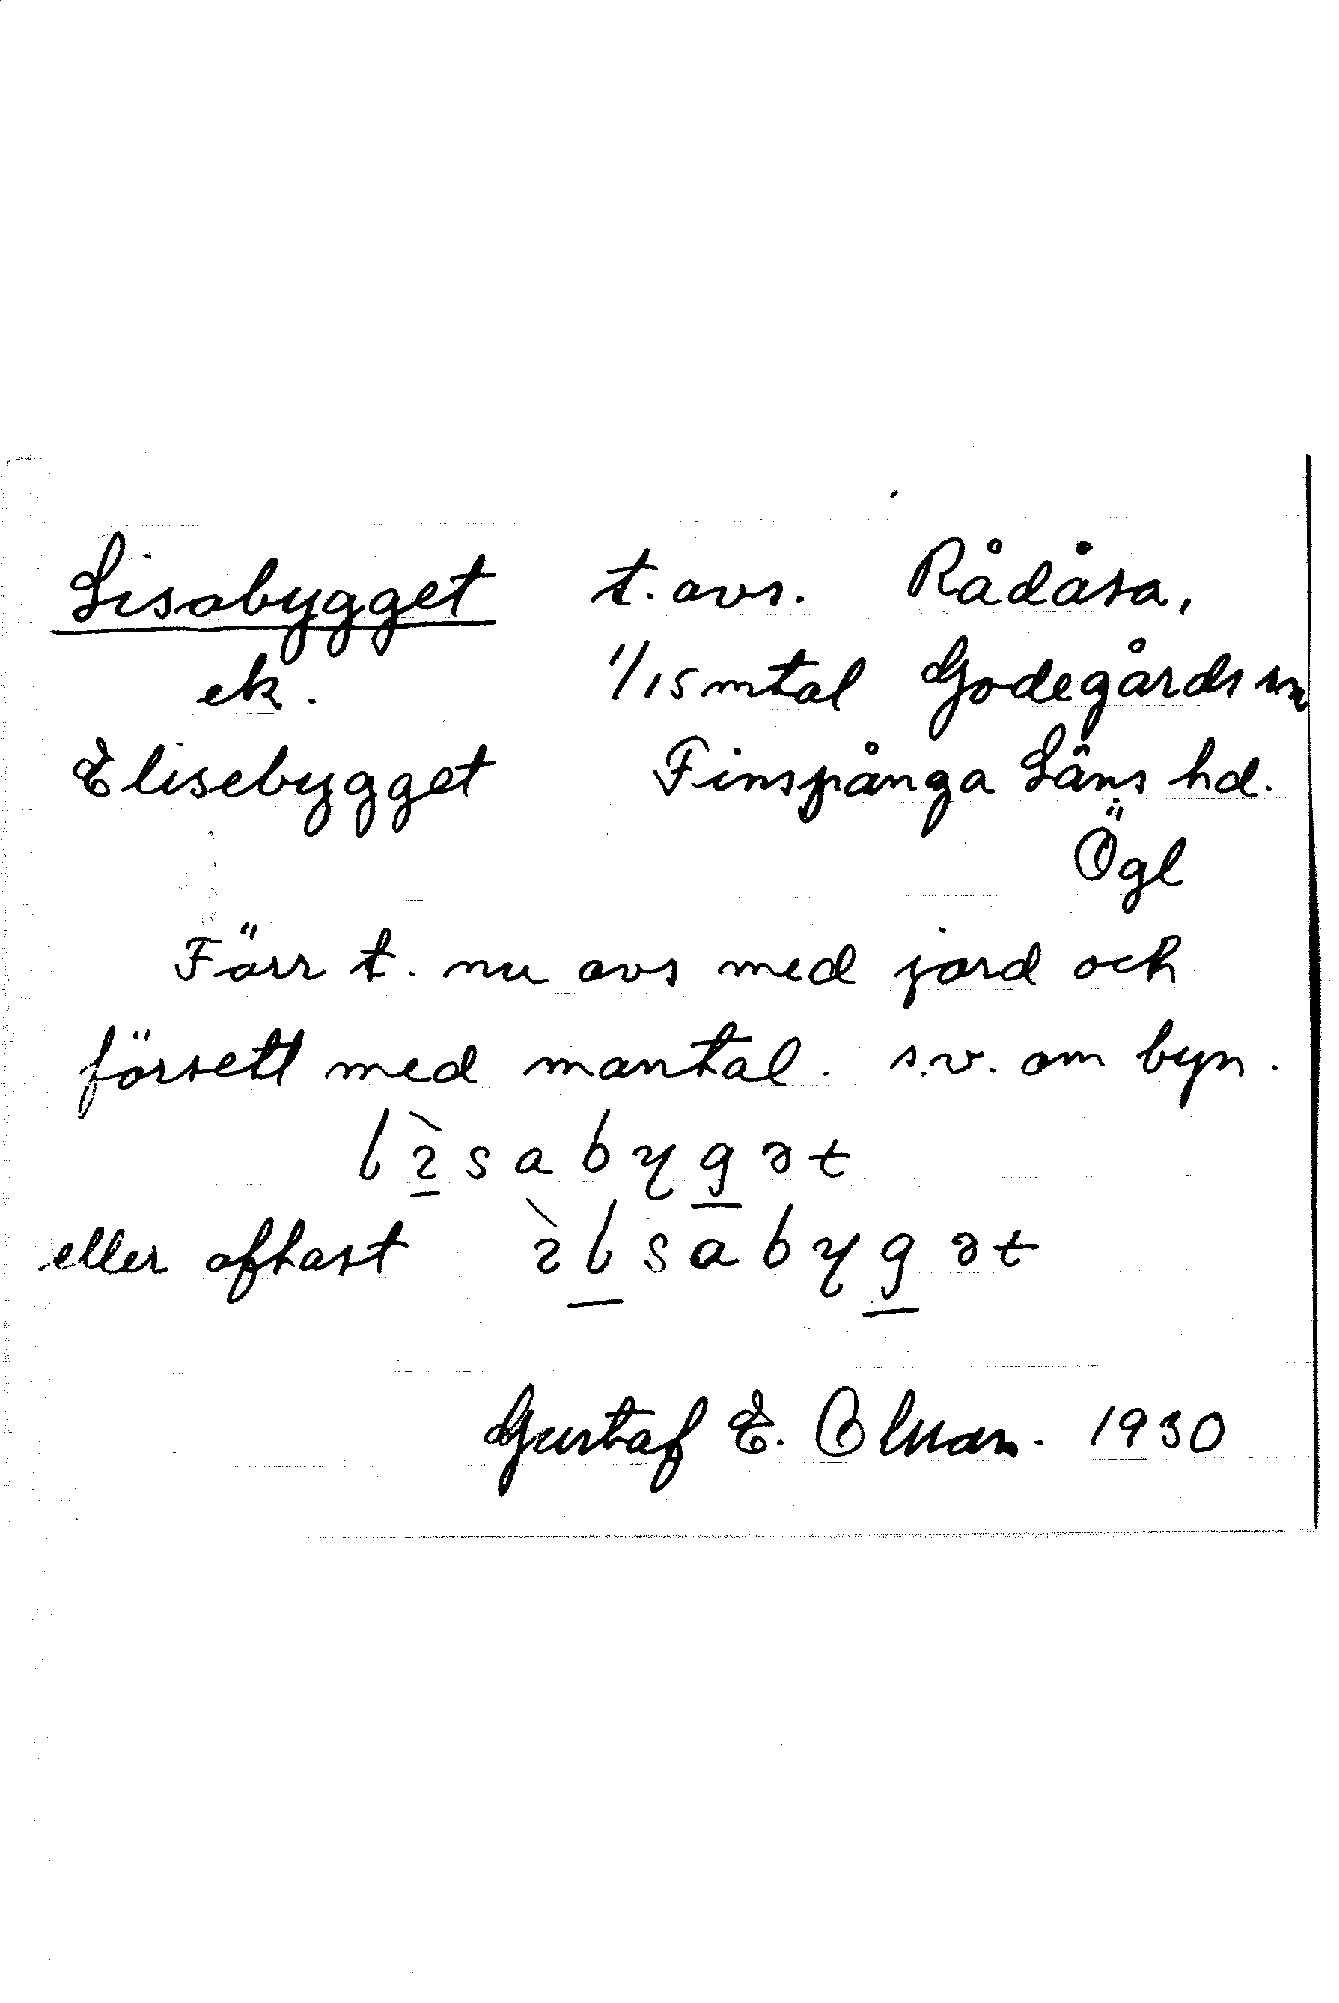 Lisabygget t. avs. Rådåsa,
ek. 1/15 mtal Godegårds sn
Elisebygget Finspånga Läns hd.
Ögl
Förr t. nu avs med jord och
försett med mantal. s.v. om byn.
lìsabygət
eller oftast ìlsabygət
Gustaf E. Olsson. 1930